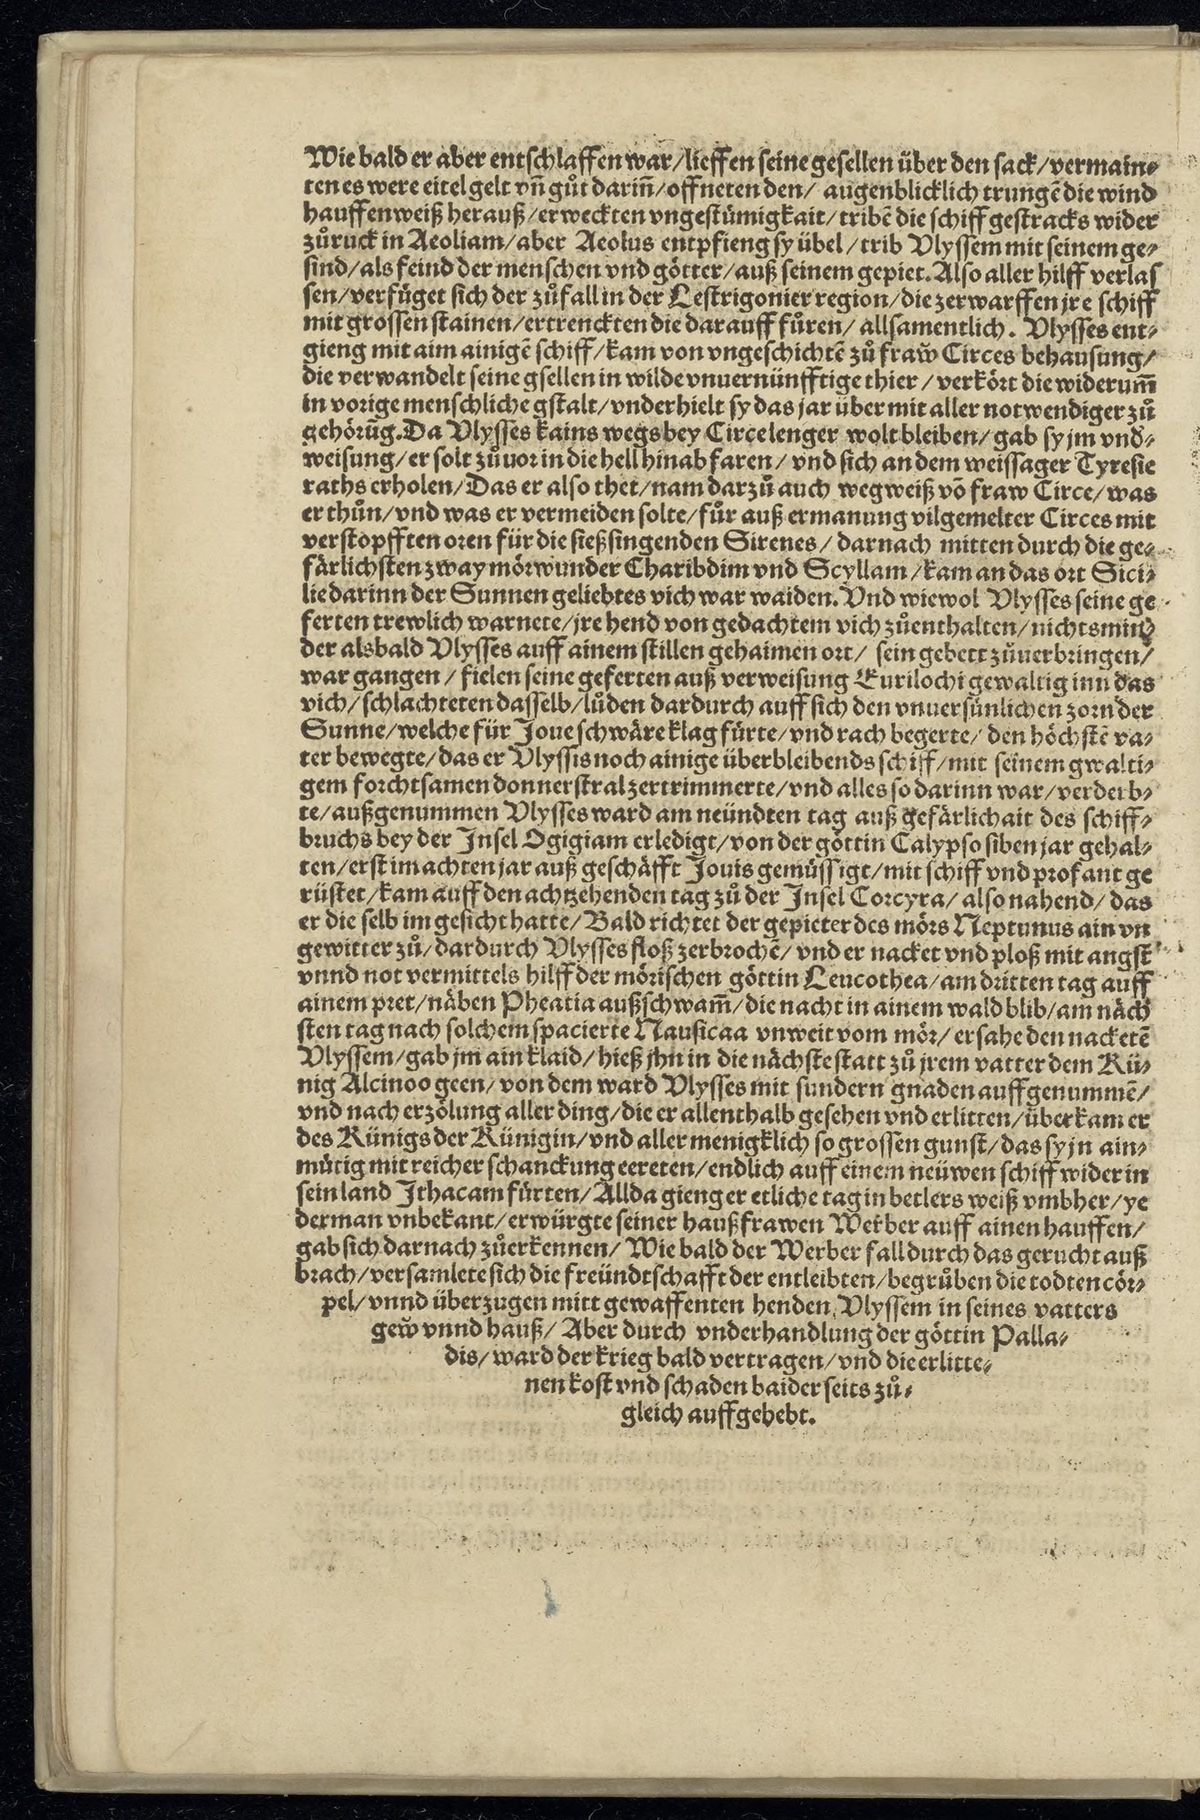 Wie bald er aber entschlaffen war/lieffen seine gesellen über den sack/vermain⸗
ten es were eitel gelt vn̄ gůt darin̄/offneten den/ augenblicklich trungē die wind
hauffenweiß herauß/erweckten vngestümigkait/tribē die schiff gestracks wider
zůruck in Aeoliam/aber Aeolus entpfieng sy übel/trib Vlyssem mit seinem ge⸗
sind/als feind der menschen vnd götter/auß seinem gepiet. Also aller hilff verlas
sen/verfüget sich der zůfall in der Lestrigonier region/die zerwarffen jre schiff
mit grossen stainen/ertrenckten die darauff fůren/ allsamentlich. Vlysses ent⸗
gieng mit aim ainigē schiff/kam von vngeschichtē zů fraw̄ Circes behausung/
die verwandelt seine gsellen in wilde vnuernünfftige thier/verkört die widerum̄
in vorige menschliche gstalt/vnderhielt sy das jar über mit aller notwendiger zů
gehörūg. Da Vlysses kains wegs bey Circe lenger wolt bleiben/gab sy jm vnd⸗
weisung/er solt zůuor in die hell hinab faren/ vnd sich an dem weissager Tyresie
raths erholen/Das er also thet/nam darzů auch wegweiß vō fraw Circe/was
er thůn/vnd was er vermeiden solte/fůr auß ermanung vilgemelter Circes mit
verstopfften oren für die sießsingenden Sirenes/ darnach mitten durch die ge⸗
färlichsten zway mörwunder Charibdim vnd Scyllam/kam an das ort Sici⸗
lie darinn der Sunnen geliebtes vich war waiden. Vnd wiewol Vlysses seine ge
ferten trewlich warnete/jre hend von gedachtem vich zůenthalten/nichtsmin⸗
der alsbald Vlysses auff ainem stillen gehaimen ort/ sein gebett zůuerbringen/
war gangen/ fielen seine geferten auß verweisung Eurilochi gewaltig inn das
vich/schlachteten dasselb/lůden dardurch auff sich den vnuersünlichen zorn der
Sunne/welche für Joue schwäre klag fürte/vnd rach begerte/ den höchstē va⸗
ter bewegte/das er Vlyssis noch ainige überbleibends schiff/mit seinem gwalti⸗
gem forchtsamen donnerstral zertrimmerte/vnd alles so darinn war/verderb⸗
te/außgenummen Vlysses ward am neündten tag auß gefärlichait des schiff⸗
bruchs bey der Insel Ogigiam erledigt/von der göttin Calypso siben jar gehal⸗
ten/erst im achten jar auß geschäfft Jouis gemüssigt/mit schiff vnd profant ge
rüstet/kam auff den achtzehenden tag zů der Insel Corcyra/also nahend/ das
er die selb im gesicht hatte/Bald richtet der gepieter des mörs Neptunus ain vn
gewitter zů/dardurch Vlysses floß zerbrochē/ vnd er nacket vnd ploß mit angst
vnnd not vermittels hilff der mörischen göttin Leucothea/am dritten tag auff
ainem pret/näben Pheatia außschwam̄/die nacht in ainem wald blib/am näch
sten tag nach solchem spacierte Nausicaa vnweit vom mör/ersahe den nacketē
Vlyssem/gab jm ain klaid/hieß jhn in die nächste statt zů jrem vatter dem Kü⸗
nig Alcinoo geen/von dem ward Vlysses mit sundern gnaden auffgenummē/
vnd nach erzölung aller ding/die er allenthalb gesehen vnd erlitten/überkam er
des Künigs der Künigin/vnd aller menigklich so grossen gunst/das sy jn ain⸗
mütig mit reicher schanckung eereten/endlich auff einem neüwen schiff wider in
sein land Ithacam fürten/Allda gieng er etliche tag in betlers weiß vmbher/ye
derman vnbekant/erwürgte seiner haußfrawen Werber auff ainen hauffen/
gab sich darnach zůerkennen/Wie bald der Werber fall durch das gerucht auß
brach/versamlete sich die freündtschafft der entleibten/begrůben die todten cör⸗
pel/vnnd überzugen mitt gewaffenten henden, Vlyssem in seines vatters
gew̄ vnnd hauß/ Aber durch vnderhandlung der göttin Palla⸗
dis/ward der krieg bald vertragen/vnd die erlitte⸗
nen kost vnd schaden baider seits zů⸗
gleich auffgehebt.